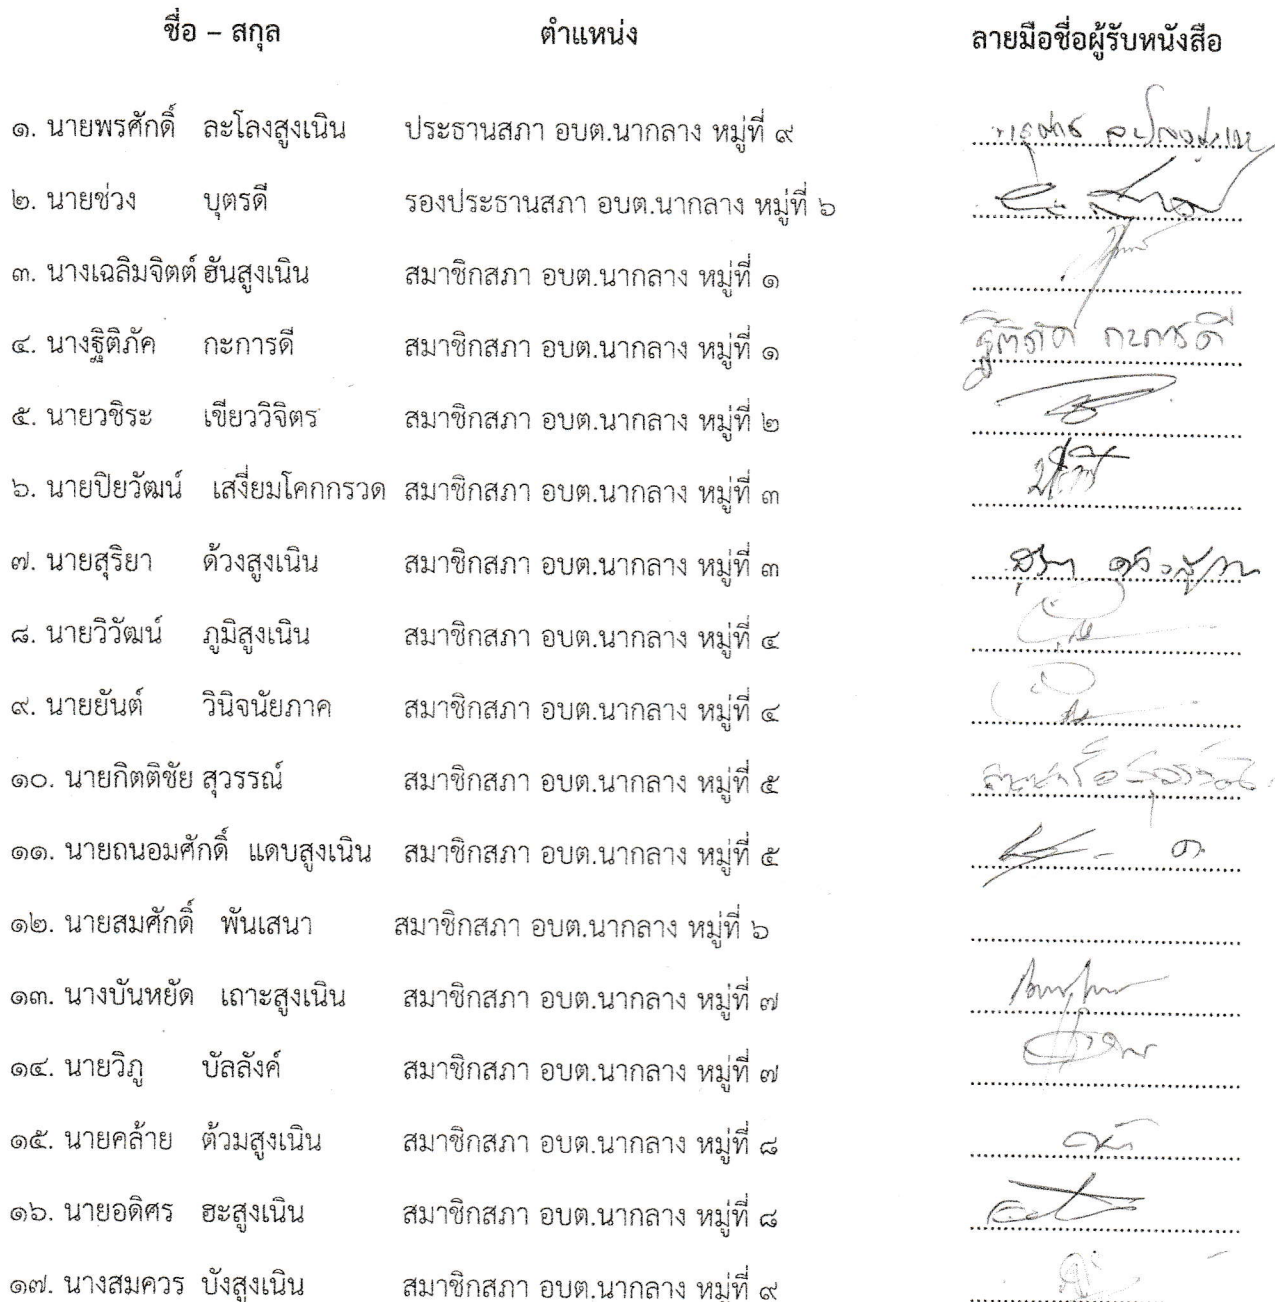 ชื่อ – สกุล ตำแหน่ง ลายมือชื่อผู้รับหนังสือ
๑. นายพรศักดิ์ ละโลงสูงเนิน ประธานสภา อบต.นากลาง หมู่ที่ ๙
๒. นายช่วง บุตรดี รองประธานสภา อบต.นากลาง หมู่ที่ ๖
๓. นางเฉลิมจิตต์ ฮันสูงเนิน สมาชิกสภา อบต.นากลาง หมู่ที่ ๑
๔. นางฐิติภัค กะการดี สมาชิกสภา อบต.นากลาง หมู่ที่ ๑ ฐิติภัค กะการดี
๕. นายวชิระ เขียววิจิตร สมาชิกสภา อบต.นากลาง หมู่ที่ ๒
๖. นายปิยวัฒน์ เสงี่ยมโคกกรวด สมาชิกสภา อบต.นากลาง หมู่ที่ ๓
๗. นายสุริยา ด้วงสูงเนิน สมาชิกสภา อบต.นากลาง หมู่ที่ ๓
๘. นายวิวัฒน์ ภูมิสูงเนิน สมาชิกสภา อบต.นากลาง หมู่ที่ ๔
๙. นายยันต์ วินิจนัยภาค สมาชิกสภา อบต.นากลาง หมู่ที่ ๔
๑๐. นายกิตติชัย สุวรรณ์ สมาชิกสภา อบต.นากลาง หมู่ที่ ๕
๑๑. นายถนอมศักดิ์ แดบสูงเนิน สมาชิกสภา อบต.นากลาง หมู่ที่ ๕
๑๒. นายสมศักดิ์ พันเสนา สมาชิกสภา อบต.นากลาง หมู่ที่ ๖
๑๓. นางบันหยัด เถาะสูงเนิน สมาชิกสภา อบต.นากลาง หมู่ที่ ๗
๑๔. นายวิภู บัลลังค์ สมาชิกสภา อบต.นากลาง หมู่ที่ ๗
๑๕. นายคล้าย ต้วมสูงเนิน สมาชิกสภา อบต.นากลาง หมู่ที่ ๘
๑๖. นายอดิศร ฮะสูงเนิน สมาชิกสภา อบต.นากลาง หมู่ที่ ๘
๑๗. นางสมควร บังสูงเนิน สมาชิกสภา อบต.นากลาง หมู่ที่ ๙